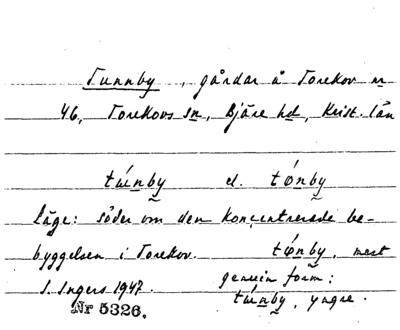 Tunnby, gårdar å Torekov nr
46, Torekovs sn, Bjäre hd, Krist. län
túnby el. tónby
Läge: söder om den koncentrerade be-
byggelsen i Torekov. tónby, mest
S. Ingers 1947. genuin form;
túnby, yngre.
Nr 5326.